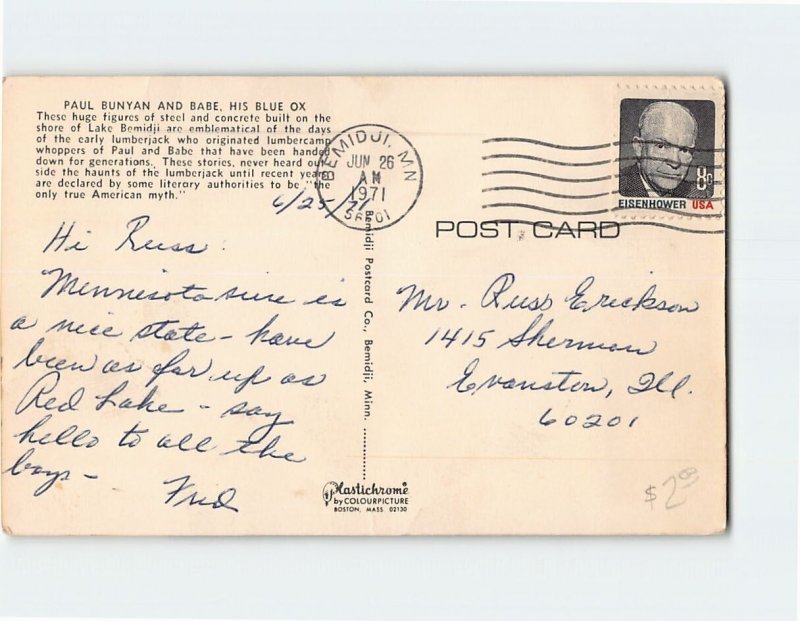 PAUL BUNYAN AND BABE, HIS BLUE OX
These huge figures of steel and concrete built on the
shore of Lake Bemidji are emblematical of the days
of the early lumberjack who originated lumbercamp
whoppers of Paul and Babe that have been handed
down for generations. These stories, never heard out-
side the haunts of the lumberjack until recent years
are declared by some literary authorities to be "the
only true American myth."
6/25/71
Hi Russ:
Minnesota sure is
a nice state - have
been as far up as
Red Lake - say
hello to all the
boys -
Fred
BEMIDJI, MN
JUN 26
AM
1971
56601
EISENHOWER USA
8c
POST CARD
Mr. Russ Erickson
1415 Sherman
Evanston, Ill.
60201
Bemidji Postcard Co., Bemidji, Minn.
Plastichrome®
by COLOURPICTURE
BOSTON, MASS 02130
$2.00